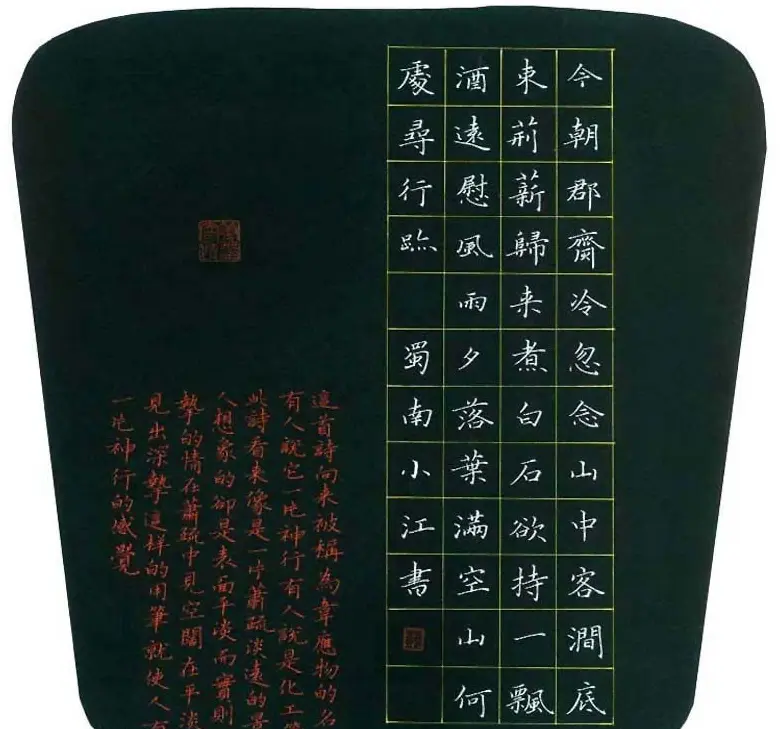 今朝郡齋冷忽念山中客澗底
束荊薪歸来煮白石欲持一瓢
酒遠慰風雨夕落葉滿空山何
處尋行跡 蜀南小江書
這首詩向来被稱為韋應物的名
有人說它一片神行有人說是化工
此詩看来像是一片蕭疏淡遠的景
人想象的卻是表面平淡而實則
摯的情在蕭疏中見空闊在平淡
見出深摯這樣的用筆就使人有
一片神行的感覺